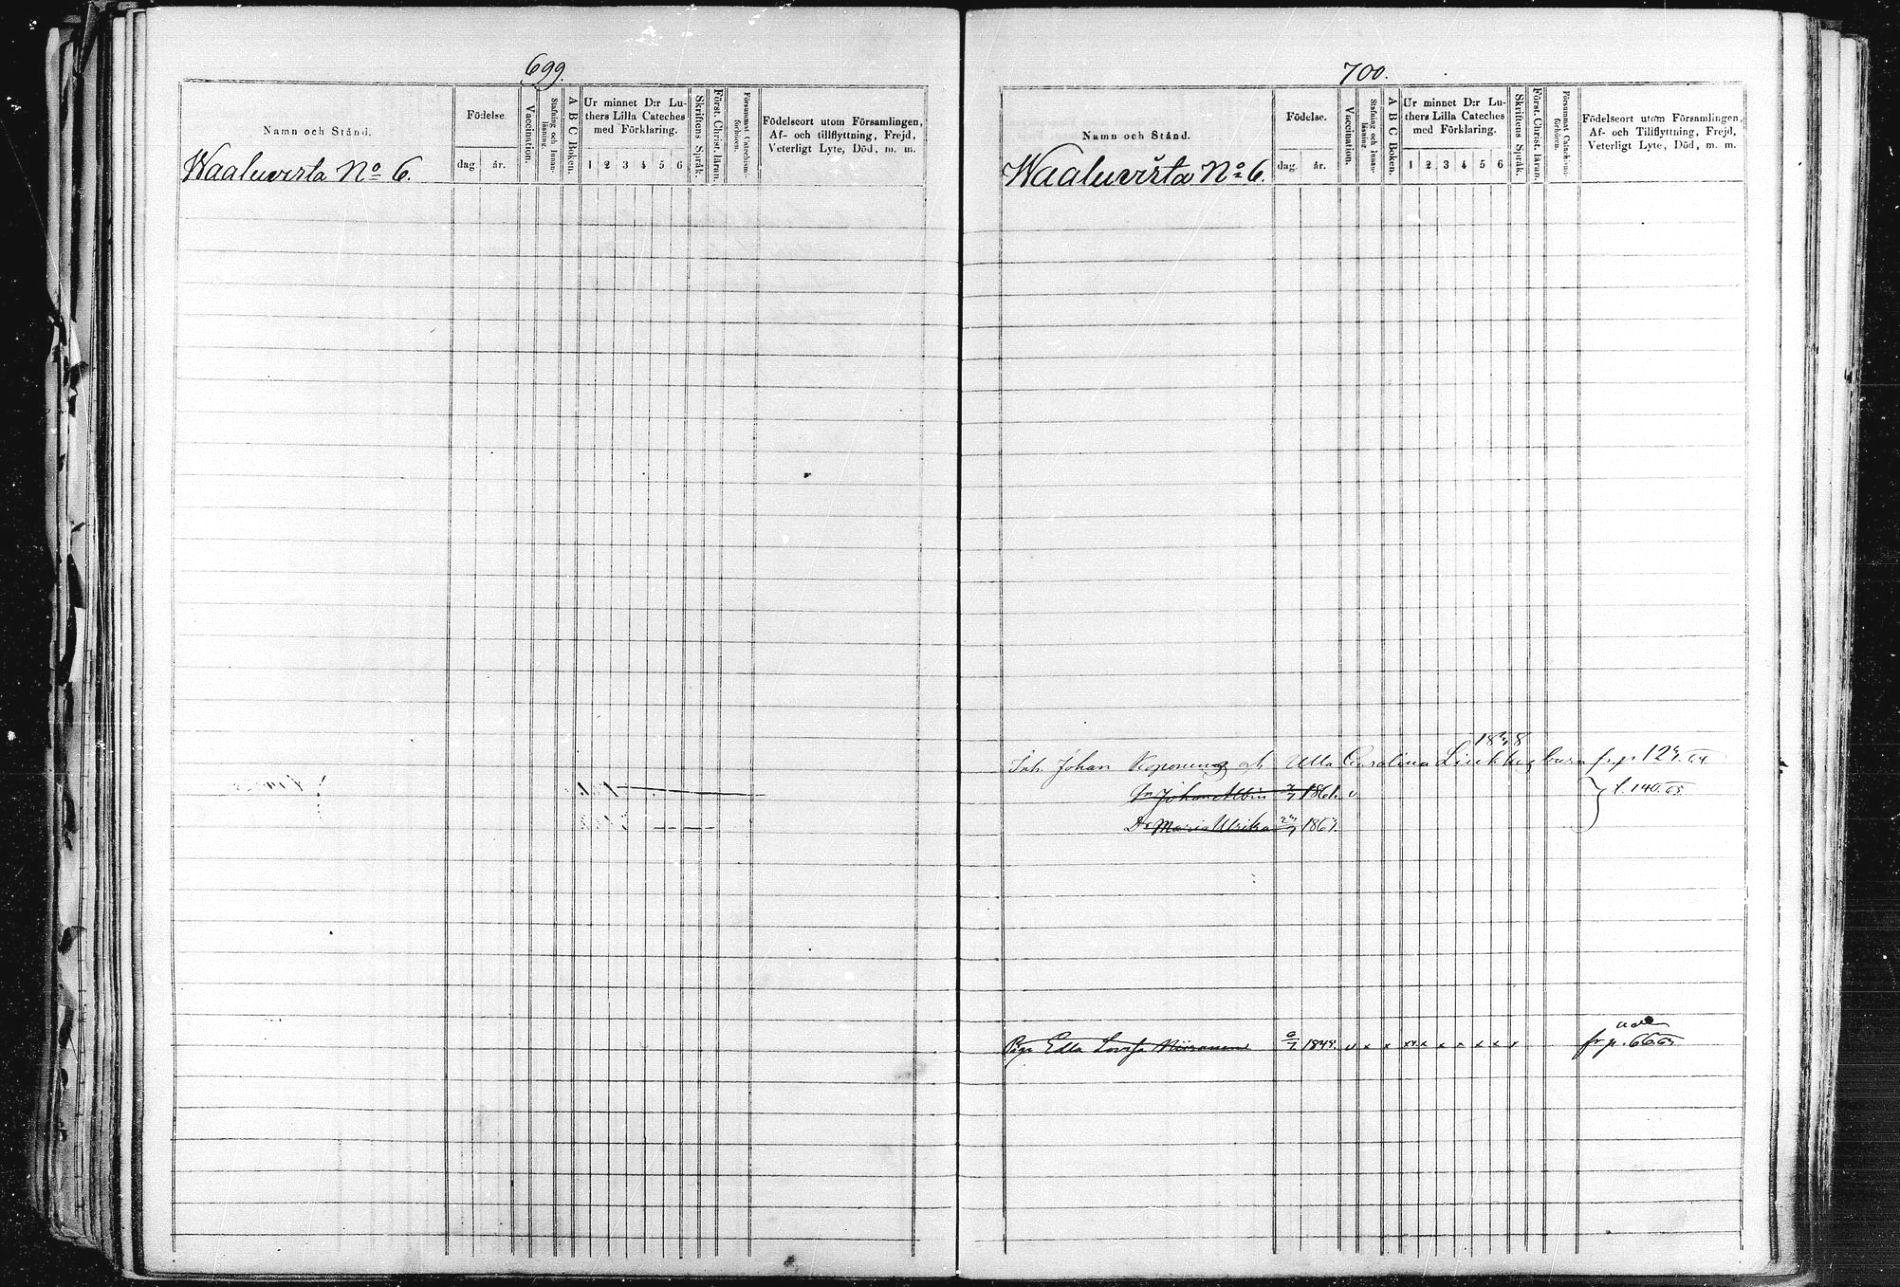 699.
Namn och Stånd.
Födelse
dag
år.
Vaccination.
Stafning och Innan-
läsning.
A B C Boken.
Ur minnet D:r Lu-
thers Lilla Cateches
med Förklaring.
1 2 3 4 5 6
Skriftens Språk.
Först. Christ. läran.
Försummat Catechismi-
förhören.
Födelseort utom Församlingen,
Af- och tillflyttning, Frejd,
Veterligt Lyte, Död, m. m.
Waaluvirta No 6.
700.
Namn och Stånd.
Födelse.
dag.
år.
Vaccination.
Stafning och Innan-
läsning
A B C Boken.
Ur minnet D:r Lu-
thers Lilla Cateches
med Förklaring.
1 2 3 4 5 6
Skriftens Språk.
Först. Christ. läran.
Försummat Catechismi-
förhören.
Födelseort utom Församlingen,
Af- och Tillflyttning, Frejd,
Veterligt Lyte, Död, m. m.
Waaluvirta No 6.
Johan Koponen och Ulla Carolina fr. p.
Johan Albin 1861. v t. 140.65
Dr Maria Ulrika 1863.
Pig. Edla Lovisa Niiranen 1844. v x x xx x x x x x x fr p. 66.65